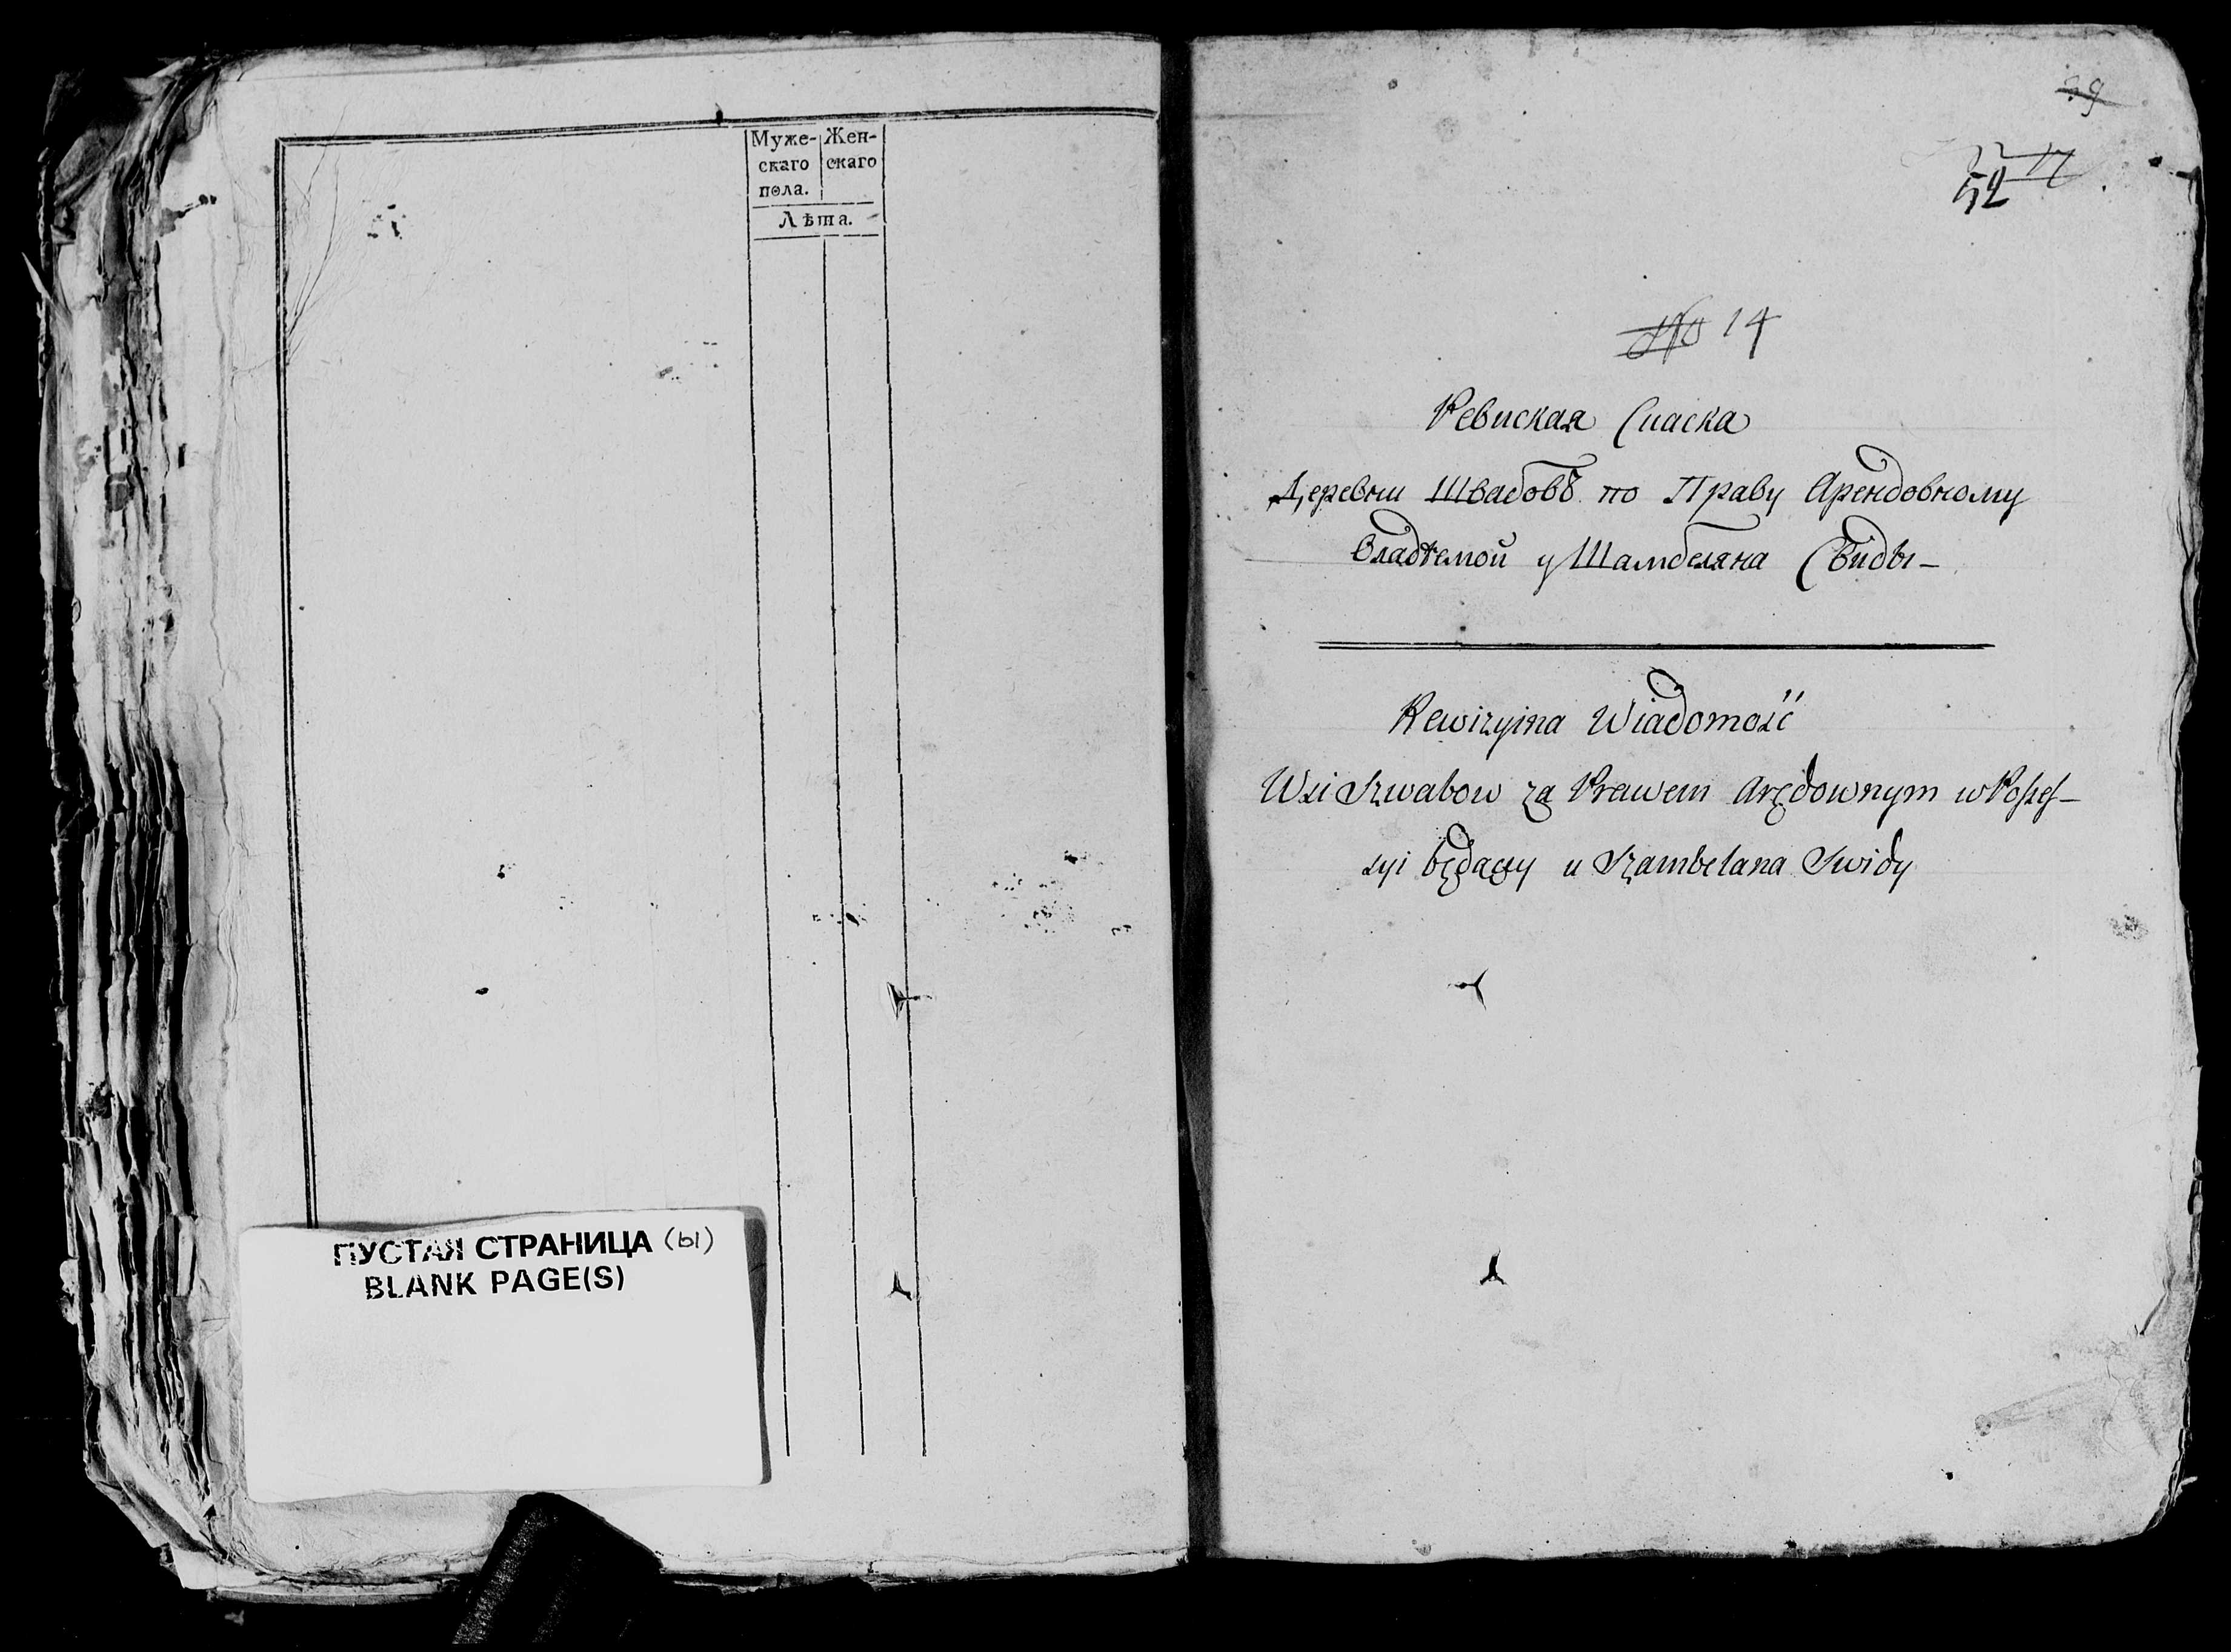 Муже- Жен-
скаго скаго
пола.
Лѣта.
ПУСТАЯ СТРАНИЦА (ы)
BLANK PAGE(S)
39
52
№ 14
Ревиская Сказка
Деревни Швабовъ по Праву Арендовному
Владѣемой у Шамбеляна Свиды –
Rewizyina Wiadomość
Wsi Szwabow za Prawem Arędownym w Posses-
syi będącey u Szambelana Swidy